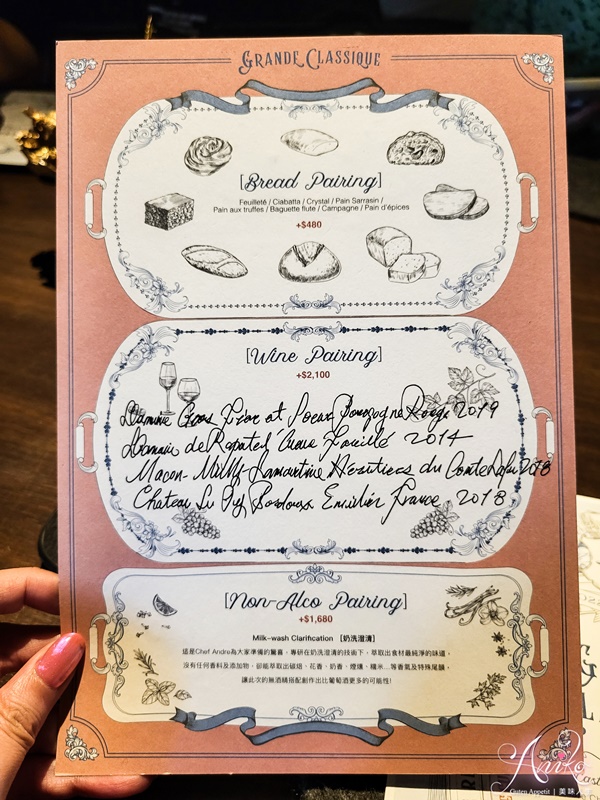 GRANDE CLASSIQUE
[Bread Pairing]
Feuilleté / Ciabatta / Crystal / Pain Sarrasin /
Pain aux truffes / Baguette flute / Campagne / Pain d'épices
+$480
[Wine Pairing]
+$2,100
Domaine Gros Frère et Soeur Bourgogne Rouge 2019
Domain de Rapatel 2014
Macon-Milly-Lamartine Héritiers du Comte Lafon 2018
Chateau Le Puy Bordeaux Emilien France 2018
[Non-Alco Pairing]
+$1,680
Milk-wash Clarification [奶洗澄清]
這是Chef Andre為大家準備的驚喜，專研在奶洗澄清的技術下，萃取出食材最純淨的味道，
沒有任何香料及添加物，卻能萃取出碳焙、花香、奶香、煙燻、穠米...等香氣及特殊尾韻，
讓此次的無酒精搭配創作出比葡萄酒更多的可能性!
Anike
Guten Appetit | 美味